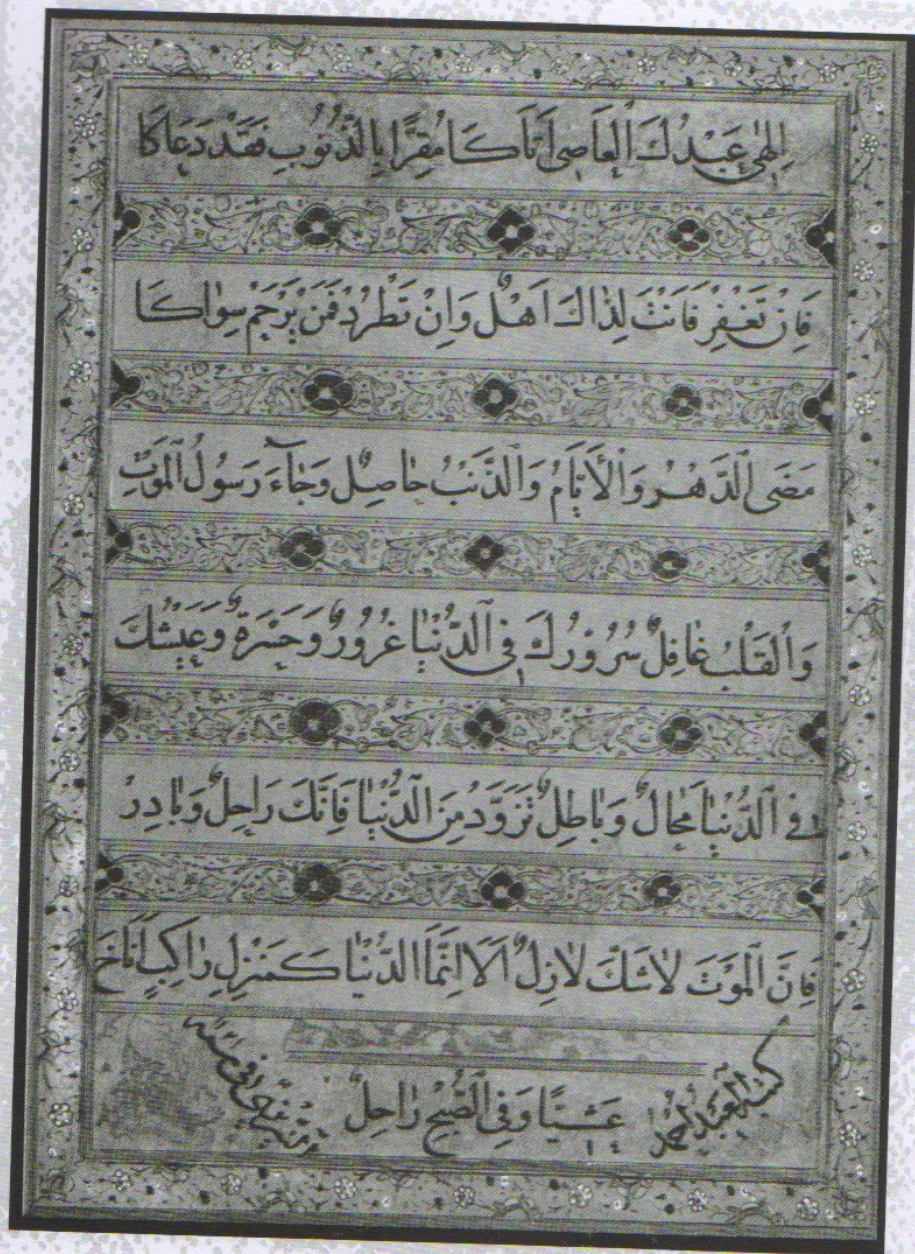 إِلٰهِي عَبْدُكَ الْعَاصِي أَتَاكَا مُقِرًّا بِالذُّنُوبِ فَقَدْ دَعَاكَا
فَإِنْ تَغْفِرْ فَأَنْتَ لِذَاكَ أَهْلٌ وَإِنْ تَطْرُدْ فَمَنْ يَرْحَمْ سِوَاكَا
مَضَى الدَّهْرُ وَالْأَيَّامُ وَالذَّنْبُ حَاصِلٌ وَجَآءَ رَسُولُ الْمَوْتِ
وَالْقَلْبُ غَافِلٌ سُرُورُكَ فِي الدُّنْيَا غُرُورٌ وَحَسْرَةٌ وَعَيْشُكَ
فِي الدُّنْيَا مُحَالٌ وَبَاطِلٌ تَزَوَّدْ مِنَ الدُّنْيَا فَإِنَّكَ رَاحِلٌ وَبَادِرْ
فَإِنَّ الْمَوْتَ لَاشَكَّ لَازِلٌ أَلَا إِنَّمَا الدُّنْيَا كَمَنْزِلِ رَاكِبٍ أَنَاخَ
عَشِيًّا وَفِي الصُّبْحِ رَاحِلٌ
كتبه العبد أحمد